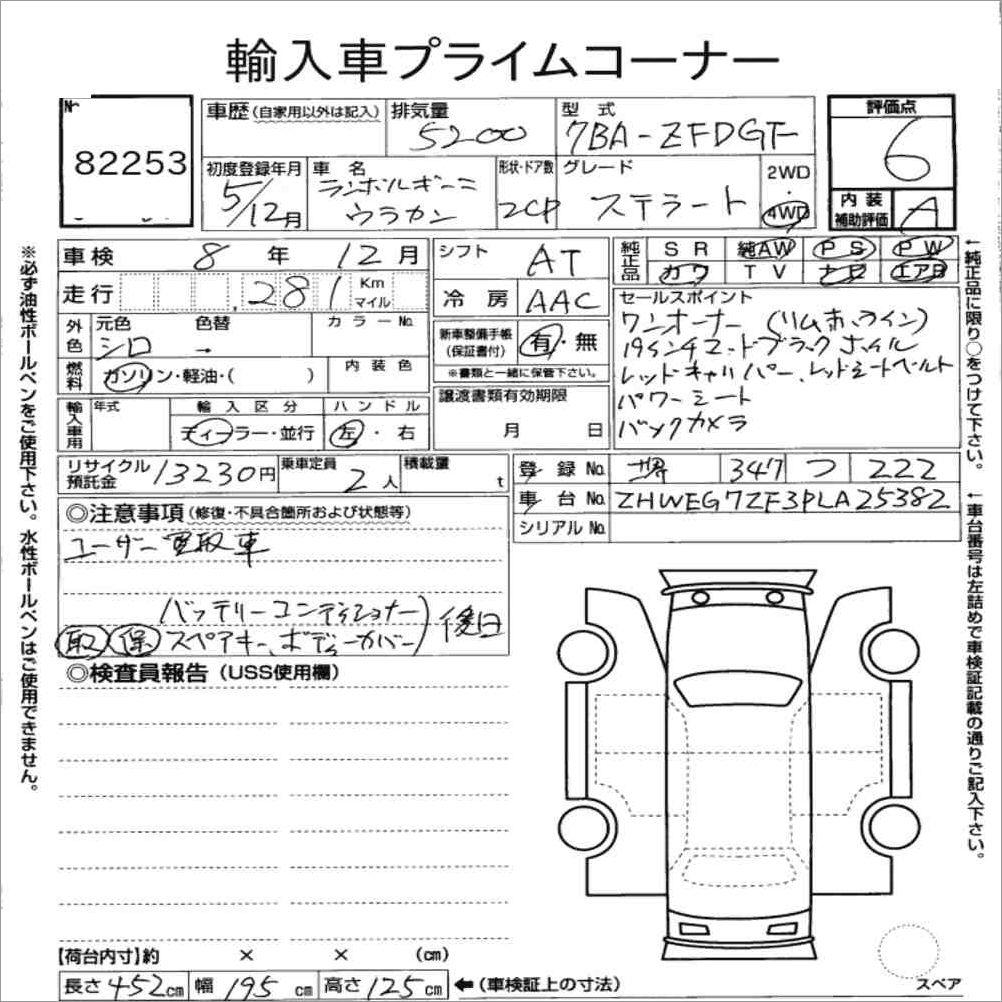 輸入車プライムコーナー
82253
車歴(自家用以外は記入) 排気量 5200 型式 7BA-ZFDGT 評価点 6
初度登録年月 5/12月 車名 ランボルギーニ ウラカン 形状・ドア数 2CP グレード ステラート 2WD・4WD 内装補助評価 A
車検 8年 12月 シフト AT 純正品 SR 純AW PS PW
走行 281 Km マイル 冷房 AAC カワ TV ナビ エアB
外色 元色 シロ 色替 → カラーNo. 新車整備手帳(保証書付) 有・無
※書類と一緒に保管下さい。
燃料 ガソリン・軽油・( ) 内装色
譲渡書類有効期限 月 日
輸入車用 年式 輸入区分 ディーラー・並行 ハンドル 左・右
セールスポイント
ワンオーナー (リムホーライン)
19インチマットブラックホイル
レッドキャリパー、レッドシートベルト
パワーシート
バックカメラ
リサイクル預託金 13230円 乗車定員 2人 積載量 t
登録No. 堺 347 つ 222
車台No. ZHWEG7ZF3PLA25382
シリアルNo.
◎注意事項(修復・不具合箇所および状態等)
ユーザー買取車
バッテリーコンディショナー
取 保 スペアキー、ボディーカバー 後日
◎検査員報告(USS使用欄)
【荷台内寸】約 × × (cm)
長さ 452cm 幅 195cm 高さ 125cm ←(車検証上の寸法)
スペア
※必ず油性ボールペンをご使用下さい。水性ボールペンはご使用できません。
←純正品に限り○をつけて下さい。
←車台番号は左詰めで車検証記載の通りご記入下さい。